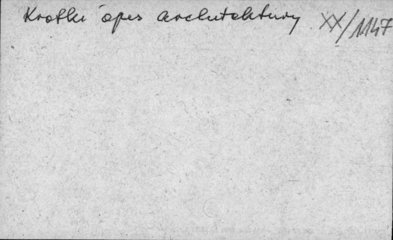 Krotki opis architektury XX/1147